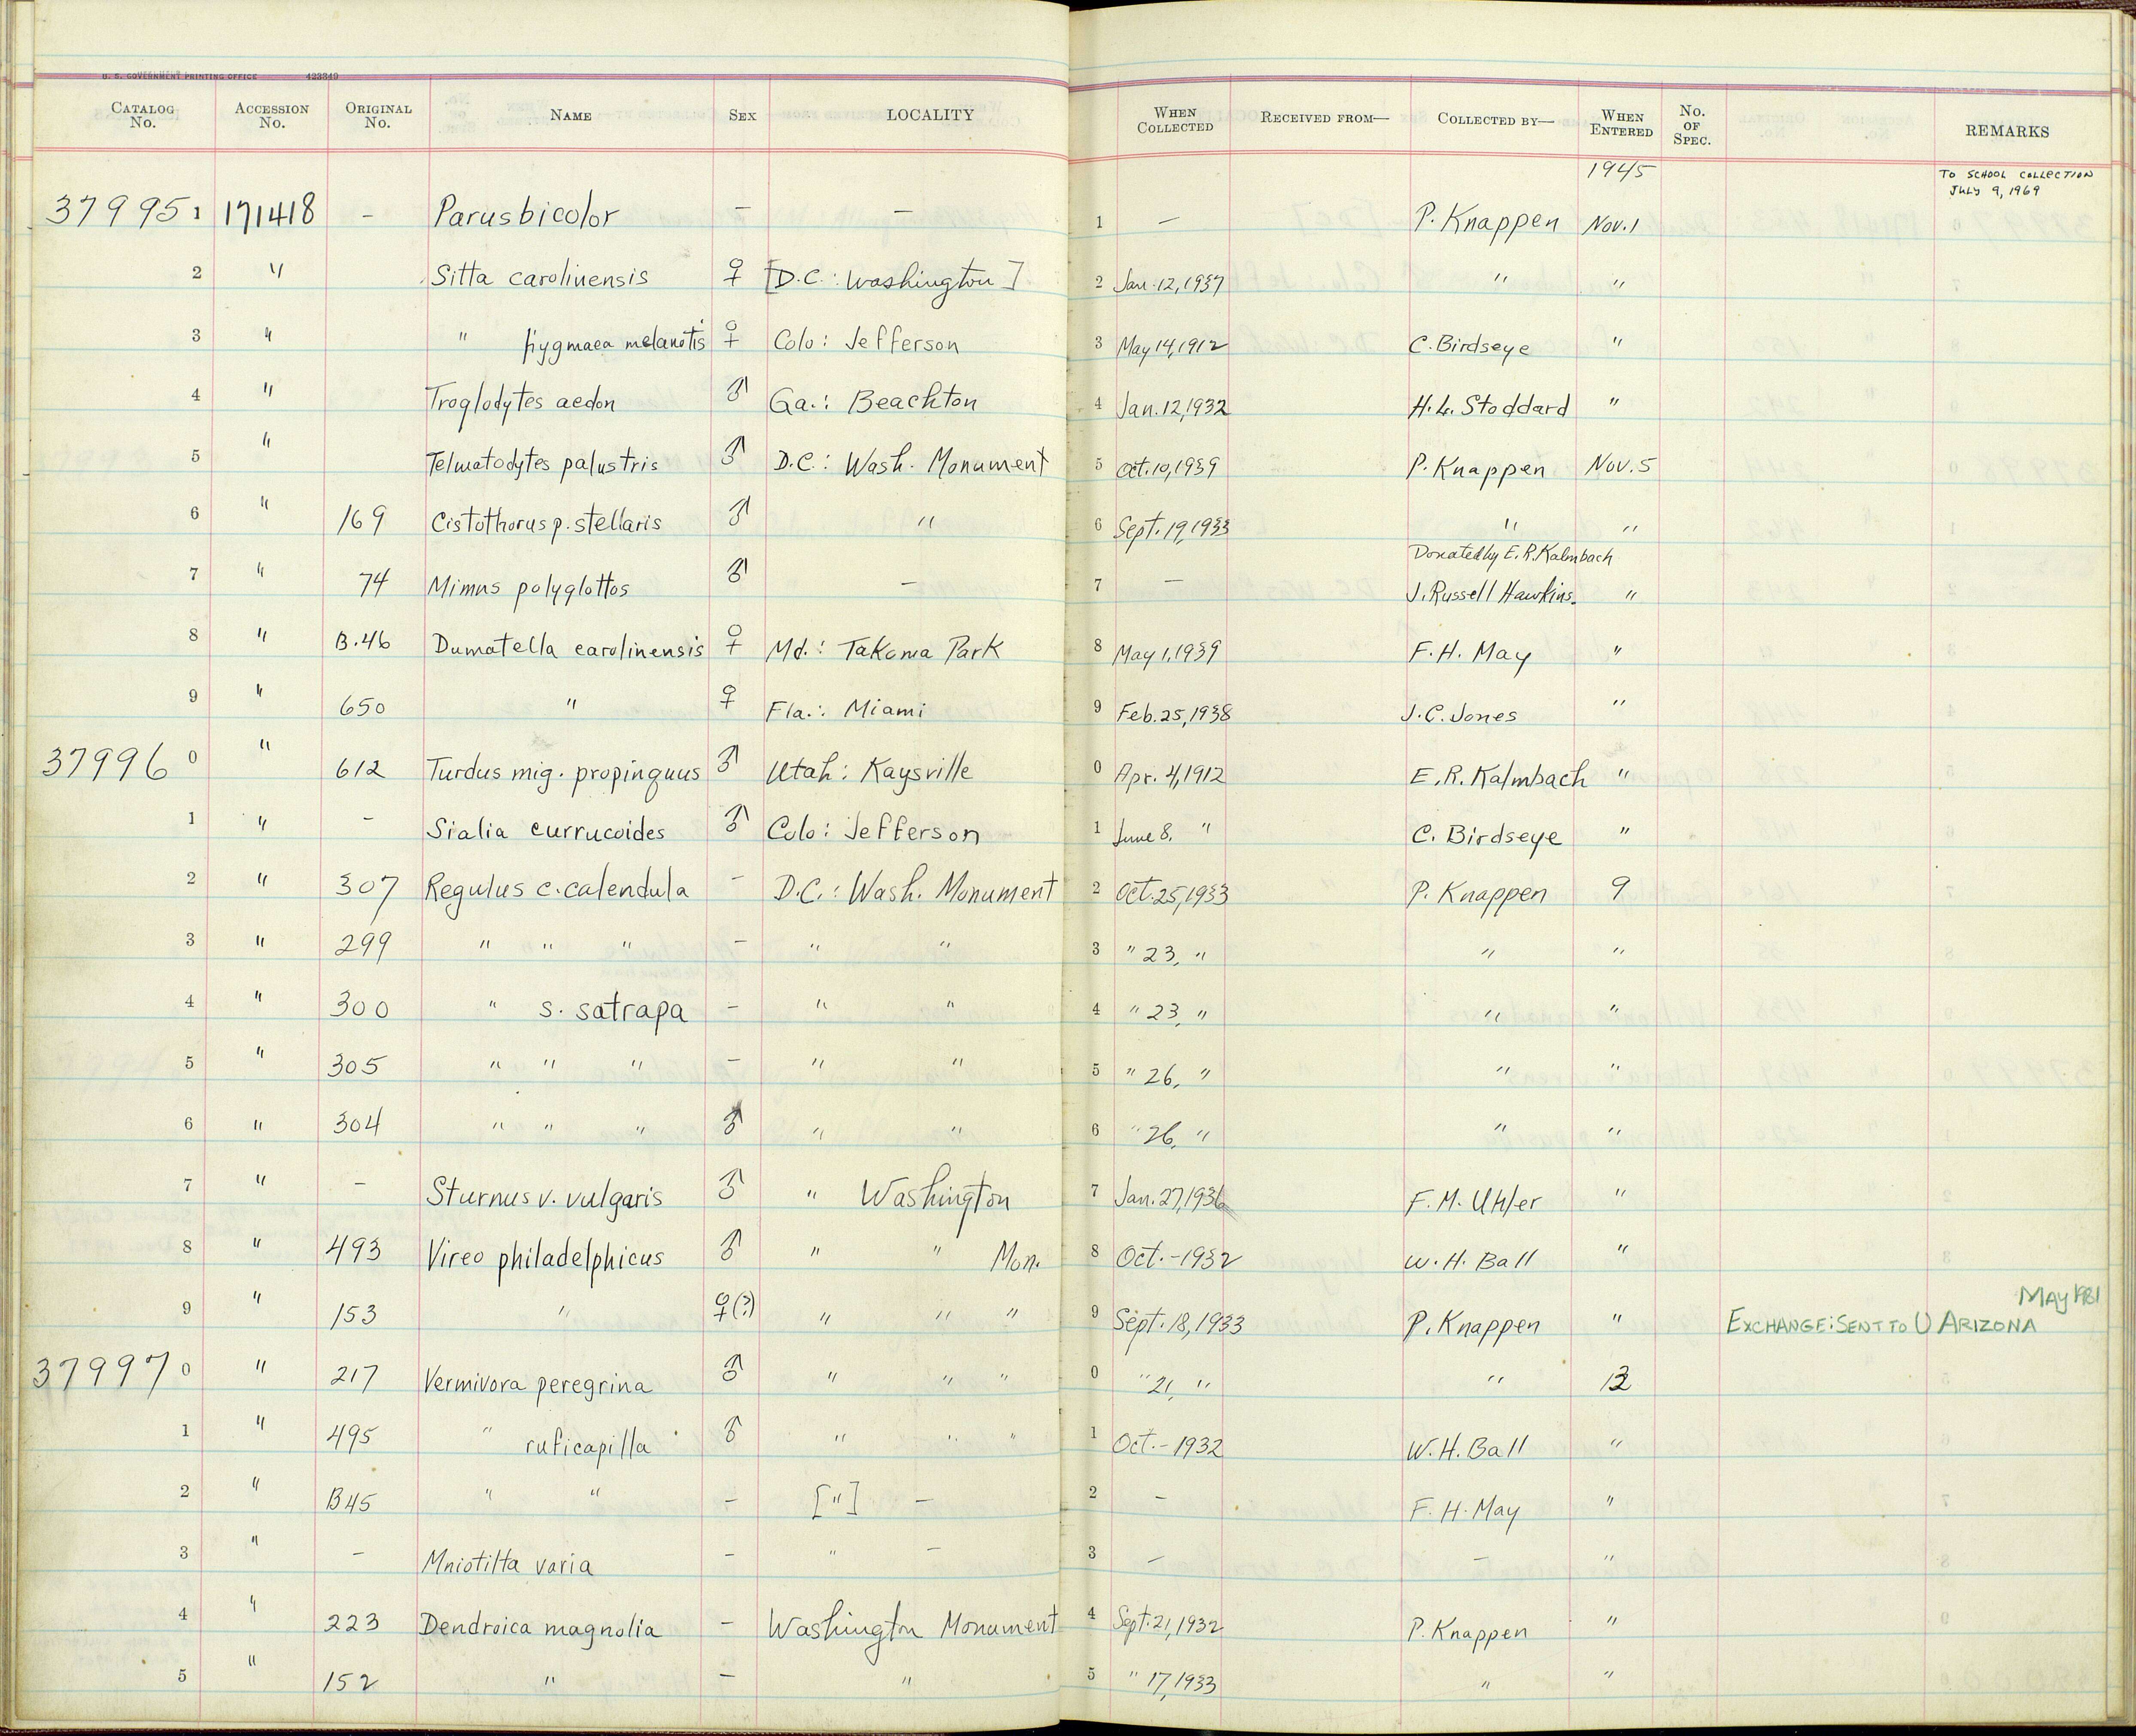 U. S. GOVERNMENT PRINTING OFFICE 423349
CATALOG No. ACCESSION No. ORIGINAL No. NAME SEX LOCALITY WHEN COLLECTED RECEIVED FROM— COLLECTED BY— WHEN ENTERED No. OF SPEC. REMARKS
1945 TO SCHOOL COLLECTION JULY 9, 1969
37995 1 171418 – Parus bicolor – – 1 – P. Knappen Nov. 1
2 " Sitta carolinensis ♀ [D.C.: Washington] 2 Jan. 12, 1937 " "
3 " " pygmaea melanotis ♀ Colo: Jefferson 3 May 14, 1912 C. Birdseye "
4 " Troglodytes aedon ♂ Ga.: Beachton 4 Jan. 12, 1932 H. L. Stoddard "
5 " Telmatodytes palustris ♂ D.C.: Wash. Monument 5 Oct. 10, 1939 P. Knappen Nov. 5
6 " 169 Cistothorus p. stellaris ♂ " 6 Sept. 19, 1933 " "
Donated by E. R. Kalmbach
7 " 74 Mimus polyglottos ♂ – 7 – J. Russell Hawkins. "
8 " B.46 Dumatella carolinensis ♀ Md.: Takoma Park 8 May 1, 1939 F. H. May "
9 " 650 " ♀ Fla.: Miami 9 Feb. 25, 1938 J. C. Jones "
37996 0 " 612 Turdus mig. propinquus ♂ Utah: Kaysville 0 Apr. 4, 1912 E. R. Kalmbach "
1 " – Sialia currucoides ♂ Colo: Jefferson 1 June 8, " C. Birdseye "
2 " 307 Regulus c. calendula – D.C.: Wash. Monument 2 Oct. 25, 1933 P. Knappen 9
3 " 299 " " " – " " 3 " 23, " " "
4 " 300 " s. satrapa – " " 4 " 23, " " "
5 " 305 " " " – " " 5 " 26, " " "
6 " 304 " " " ♂ " " 6 " 26, " " "
7 " – Sturnus v. vulgaris ♂ " Washington 7 Jan. 27, 1936 F. M. Uhler "
8 " 493 Vireo philadelphicus ♂ " " Mon. 8 Oct. – 1932 W. H. Ball "
9 " 153 " ♀(?) " " " 9 Sept. 18, 1933 P. Knappen " EXCHANGE: SENT TO U ARIZONA MAY 1981
37997 0 " 217 Vermivora peregrina ♂ " " " 0 " 21, " " 13
1 " 495 " ruficapilla ♂ " " " 1 Oct. – 1932 W. H. Ball "
2 " B45 " " – ["] – 2 – F. H. May "
3 " – Mniotilta varia – " – 3 – – "
4 " 223 Dendroica magnolia – Washington Monument 4 Sept. 21, 1932 P. Knappen "
5 " 152 " – " 5 " 17, 1933 " "